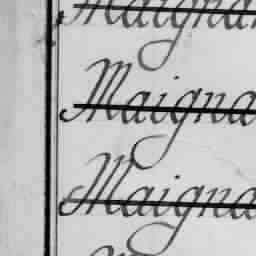 Maigna
Maigna
Maigna